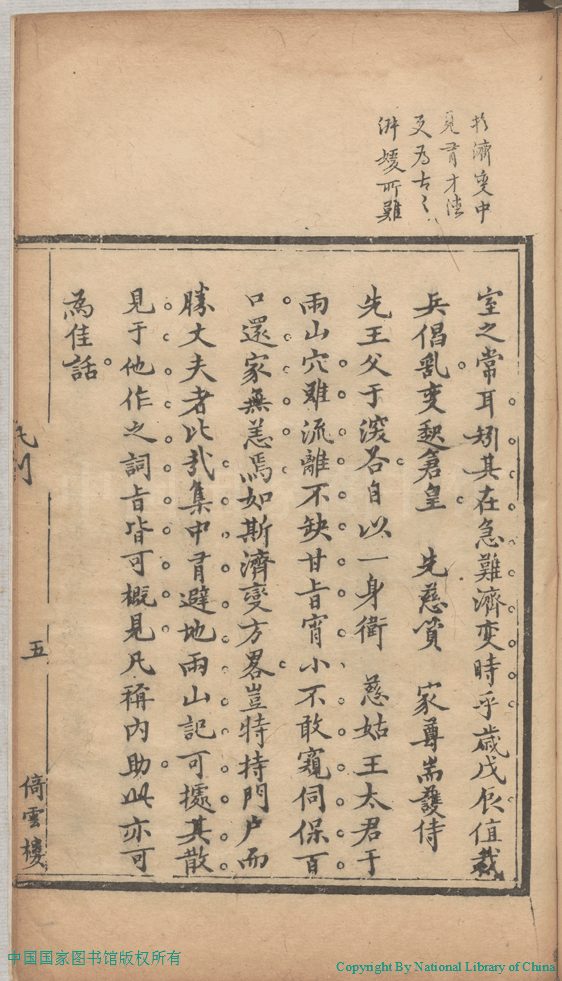 於濟變中
見有才德
更為古々
淑媛所難
室之常耳矧其在急難濟變時乎歲戊辰值裁
兵倡亂變猝倉皇　先慈負　家尊耑護侍
先王父于滾各自以一身衛　慈姑王太君于
兩山穴雖流離不缺甘旨宵小不敢窺伺保百
口還家無恙焉如斯濟變方畧豈特持門户而
勝丈夫者比哉集中有避地兩山記可據其散
見于他作之詞旨皆可概見凡稱內助此亦可
為佳話
五
倚雲樓
中国国家图书馆版权所有
Copyright By National Library of China